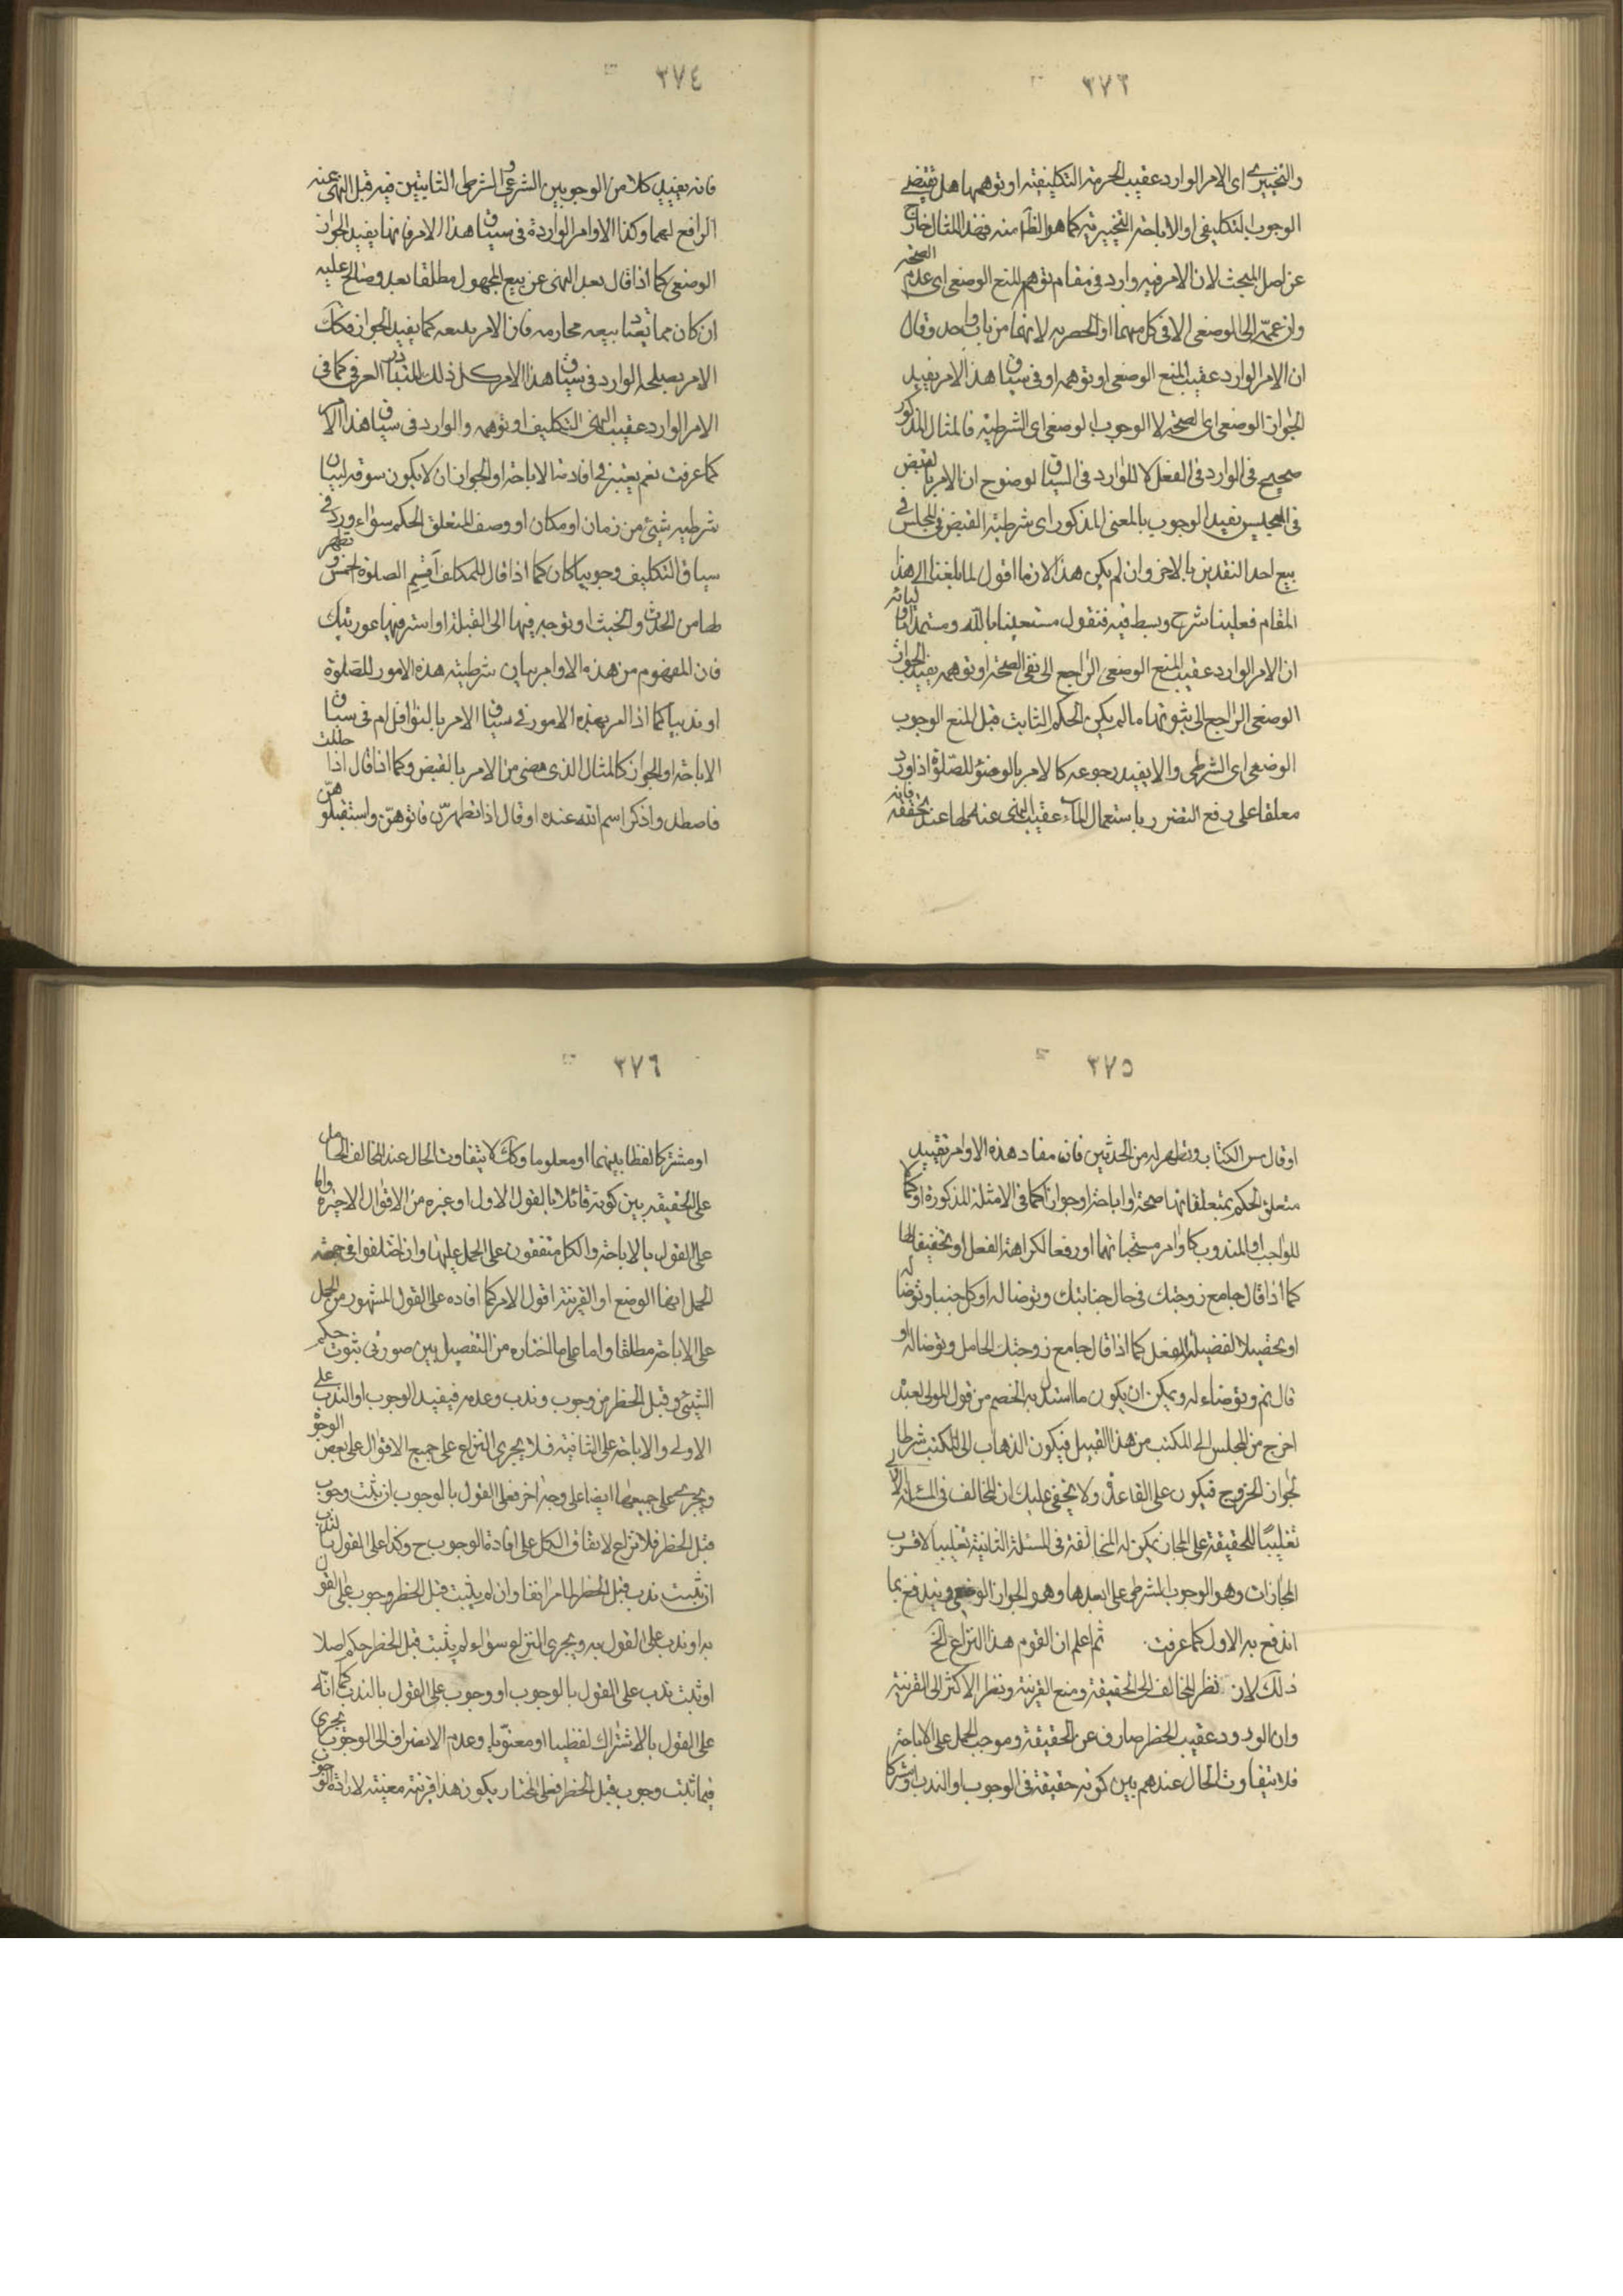 ٣٧٣
والتخييرى اى الامر الوارد عقيب الحرمة التكليفية او توهمها هل يقتضى
الوجوب التكليفى او الاباحة التخييرية كما هو الظ منه فهذا المثال خارج
عن اصل المبحث لان الامر فيه وارد فى مقام توهم المنع الوضعى اى عدم الصحة
وان عممه الى الوضعى الا فى كل منهما او الحصر به لانهما من باب واحد وقال
ان الامر الوارد عقيب المنع الوضعى او توهمه او فى سياق هذا الامر يفيد
الجواز الوضعى اى الصحة لا الوجوب الوضعى اى الشرطية فالمثال المذكور
صحيح فى الوارد فى الفعل لا للوارد فى السياق لوضوح ان الامر بالقبض
فى المجلس يفيد الوجوب بالمعنى المذكور اى شرطية القبض فى المجلس فى
بيع احد النقدين بالاخر وان لم يكن هذا الازما اقول لما بلغنا الى هذا
المقام فعلينا شرح وبسط فيه فنقول مستعينا بالله ومستمدا
ان الامر الوارد عقيب المنع الوضعى الراجع الى نفى الصحة او توهمه يفيد الجواز
الوضعى الراجع الى ثبوتها ما لم يكن الحكم الثابت قبل المنع الوجوب
الوضعى اى الشرطى والا يفيد رجوعه كالامر بالوضوء للصلوة اذا ورد
معلقا على رفع التضرر باستعمال الماء عقيب النهى عنه لها عند تحققه فانه
٣٧٤
فانه يفيد كلا من الوجوبين الشرعى والشرطى الثابتين فيه قبل النهى عنه
الرافع لهما وكذا الاوامر الواردة فى سياق هذا الامر فانها يفيد الجواز
الوضعى كما اذا قال بعد النهى عن بيع المجهول مطلقا بعه وصالح عليه
ان كان مما تعتاد بيعه محازمه فان الامر ببيعه كما يفيد الجواز فكك
الامر بصلحه الوارد فى سياق هذا الامر كل ذلك للتبادر العرفى كما فى
الامر الوارد عقيب النهى التكليف او توهمه والوارد فى سياق هذا الامر
كما عرفت نعم يعتبر فى افادتنا الاباحة او الجواز ان لا يكون سوقه لبيان
شرطية شيئ من زمان او مكان او وصف لمتعلق الحكم سواء ورد فى
سياق التكليف وجوبيا كان كما اذا قال للمكلف اقيم الصلوة الخمس وتطهر
لها من الحدث والخبث او توجه فيها الى القبلة او استر فيها عورتيك
فان المفهوم من هذه الاوامر بيان شرطية هذه الامور للصلوة
او ندبيا كما اذا امر بهذه الامور فى سياق الامر بالنوافل ام فى سياق
الاباحة او الجواز كالمثال الذى مضى من الامر بالقبض وكما اذا قال اذا حللت
فاصطد واذكر اسم الله عنده او قال اذا تطهرن فاتوهن واستقبلوهن
٣٧٥
او قال مس الكتاب وتطهر له من الحدثين فان مفاد هذه الاوامر تقييد
متعلق الحكم بمتعلقاتها صحة او اباحة او جوازا كما فى الامثلة المذكورة او كمالا
للواجب او المندوب كاوامر مستحباتهما او رفعا لكراهة الفعل او تخفيفا لها
كما اذا قال جامع زوجتك فى حال جنابتك وتوضا له او كل جنبا وتوضا له
او تحصيلا لفضيلة للفعل كما اذا قال جامع زوجتك الحامل وتوضا له او
قال نم وتوضاء له ويمكن ان يكون ما استدل به الخصم من قول المولى لعبده
اخرج من المجلس الى المكتب من هذا القبيل فيكون الذهاب الى المكتب شرطا
لجواز الخروج فيكون على القاعدة ولا يخفى عليك ان المخالف فى المسئلة الاولى
تغليبا للحقيقة على المجاز يمكن له المخالفة فى المسئلة الثانية تغليبا لاقرب
المجازات وهو الوجوب الشرطى على ابعدها وهو الجواز الوضعى ويندفع بما
اندفع به الاول كما عرفت ثم اعلم ان القوم هذا النزاع الخ
ذلك لان نظر المخالف الى الحقيقة ومنع القرينة ونظر الاكثر الى القرينة
وان الورود عقيب الحظر صارف عن الحقيقة وموجب الحمل على الاباحة
فلا يتفاوت الحال عندهم بين كونه حقيقة فى الوجوب او الندب او مشتركا
٣٧٦
او مشتركا لفظا بينهما او معلوما وكك لا يتفاوت الحال عند المخالف الحامل
على الحقيقة بين كونه قائلا بالقول الاول او غيره من الاقوال الاخيرة واما
على القول بالاباحة والكل متفقون على الحمل عليها وان اختلفوا فى جهة
الحمل انها الوضع او القرينة اقول الامر كما افاده على القول المشهور من الحمل
على الاباحة مطلقا واما على ما اختاره من التفصيل بين صورتى ثبوت حكم
الشيئ قبل الحظر من وجوب وندب وعدمه فيفيد الوجوب او الندب على
الاولى والاباحة على الثانية فلا يجرى النزاع على جميع الاقوال على بعض الوجوه
ويجرى على جميعها ايضا على وجه اخر فعلى القول بالوجوب ان ثبت وجوب
قبل الحظر فلا نزاع لاتفاق الكل على افادة الوجوب ح وكذا على القول بالندب
ان ثبت ندب قبل الحظر لما مر انفا وان لم يثبت قبل الحظر وجوب على القول
به او ندب على القول به ويجرى النزاع سواء لم يثبت قبل الحظر حكم اصلا
او ثبت ندب على القول بالوجوب او وجوب على القول بالندب كما انه
على القول بالاشتراك لفظيا او معنويا وعدم الانصراف الى الوجوب يجرى
فيما ثبت وجوب قبل الحظر فعلى المختار يكون هذا قرينة معينة لارادة الوجوب